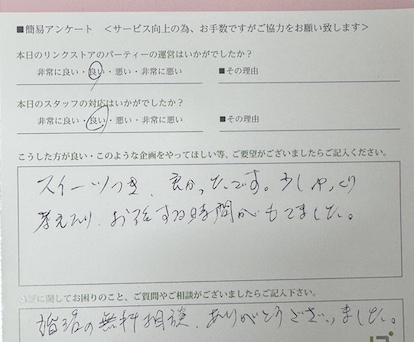 ■簡易アンケート <サービス向上の為、お手数ですがご協力をお願い致します>
本日のリンクストアのパーティーの運営はいかがでしたか?
非常に良い・良い・悪い・非常に悪い ■その理由
本日のスタッフの対応はいかがでしたか?
非常に良い・良い・悪い・非常に悪い ■その理由
こうした方が良い・このような企画をやってほしい等、ご要望がございましたらご記入ください。
スイーツつき、良かったです。少しゆっくり
考えたり、お話する時間がもてました。
に関してお困りのこと、ご質問やご相談がございましたらご記入下さい。
婚活の無料相談、ありがとうございました。